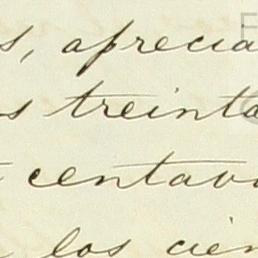 s, aprecia
s treinta
centavo
los cien